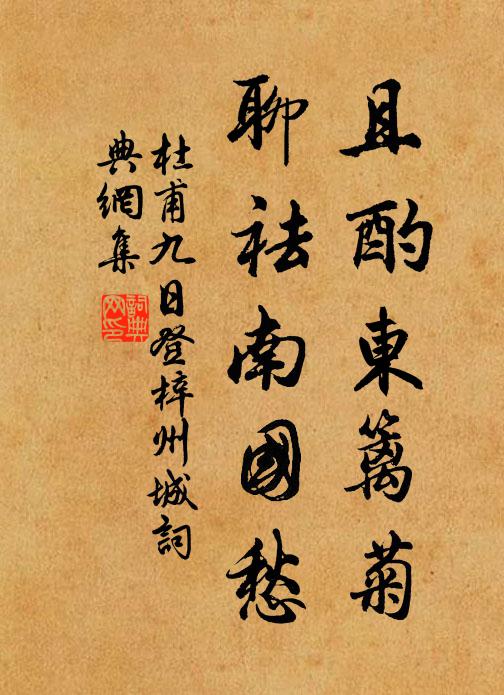 且酌東籬菊
聊祛南國愁
杜甫九日登梓州城詞
典網集
詞典
网印